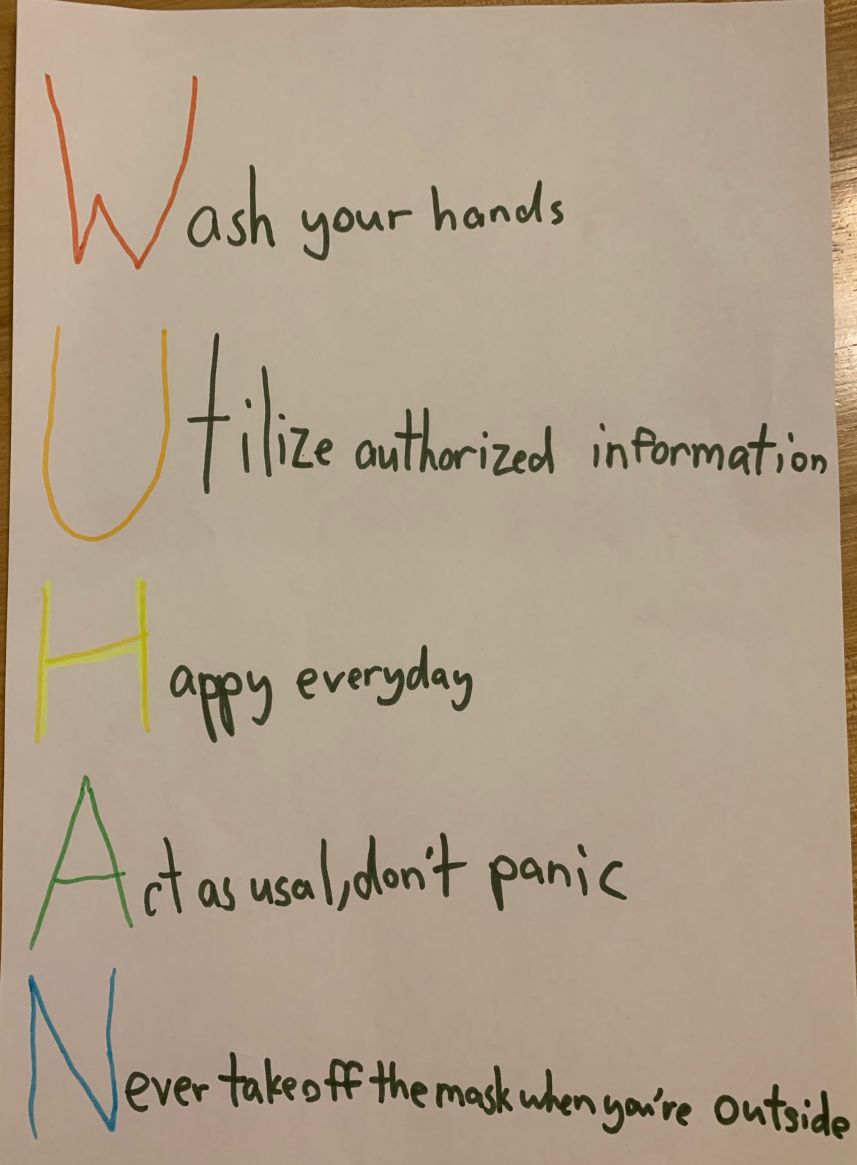 Wash your hands
Utilize authorized information
Happy everyday
Act as usal, don't panic
Never take off the mask when you're outside